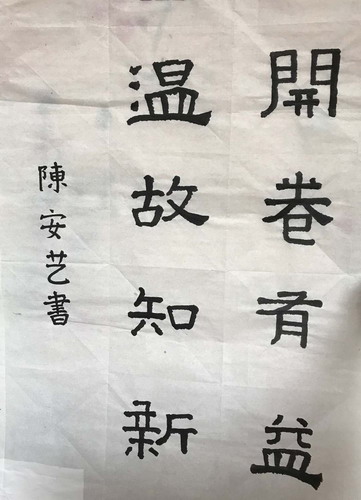 開卷有益
温故知新
陳安艺書